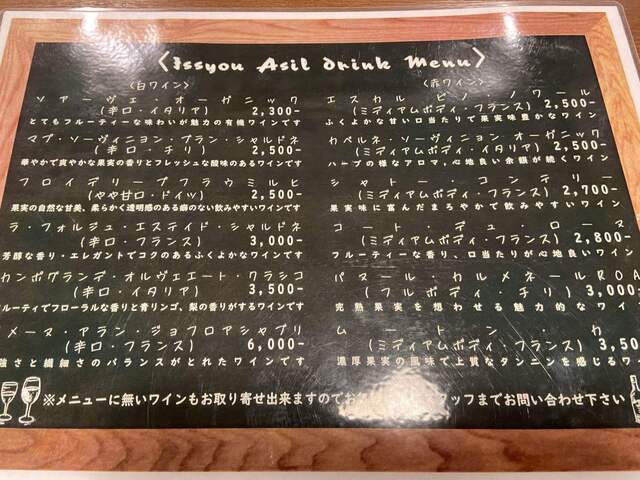 〈Issyou Asil drink Menu〉
〈白ワイン〉
ソアーヴェ・オーガニック
(辛口・イタリア) 2,300-
とてもフルーティーな味わいが魅力の有機ワインです
マプ・ソーヴィニョン・ブラン・シャルドネ
(辛口・チリ) 2,500-
華やかで爽やかな果実の香りとフレッシュな酸味のあるワインです
フロイデリープフラウミルヒ
(やや甘口・ドイツ) 2,500-
果実の自然な甘美、柔らかく透明感のある癖のない飲みやすいワインです
ラ・フォルジュ・エステイド・シャルドネ
(辛口・フランス) 3,000-
芳醇な香り・エレガントでコクのあるふくよかなワインです
カンポグランデ・オルヴェエート・クラシコ
(辛口・イタリア) 3,500-
ルーティでフローラルな香りと青リンゴ、梨の香りがするワインです
メーヌ・アラン・ジョフロアシャブリ
(辛口・フランス) 6,000-
強さと繊細さのバランスがとれたワインです
〈赤ワイン〉
エスカル・ピノ・ノワール
(ミディアムボディ・フランス) 2,500-
ふくよかな甘い口当たりで果実味豊かなワイン
カベルネ・ソーヴィニョン・オーガニック
(ミディアムボディ・イタリア) 2,500-
ハーブの様なアロマ、心地良い余韻が続くワイン
シャトー・コンテリー
(ミディアムボディ・フランス) 2,700-
果実味に富んだまろやかで飲みやすいワイン
コート・デュ・ローヌ
(ミディアムボディ・フランス) 2,800-
フルーティーな香り、口当たりが心地良いワイン
パヌール・カルメネールRO
(フルボディ・チリ) 3,000
完熟果実を想わせる魅力的なワイン
ムートン・カ
(ミディアムボディ・フランス) 3,50
濃厚果実の風味で上質なタンニンを感じるワ
※メニューに無いワインもお取り寄せ出来ますのでお タッフまでお問い合わせ下さい